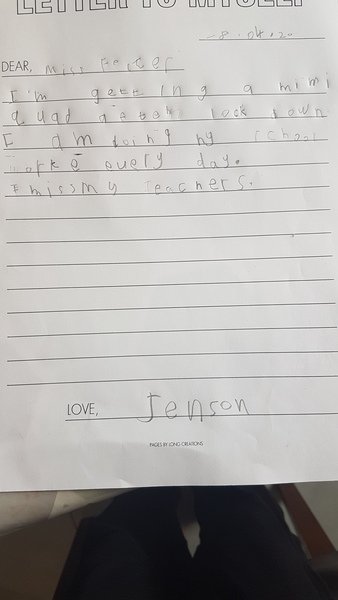 LETTER TO MYSELF
-8.04.20
DEAR, Miss
I'm getting a mimi
quad lock down
I am doing my school
orke every day.
I miss my teachers.
LOVE, Jenson
PAGES BY LONG CREATIONS